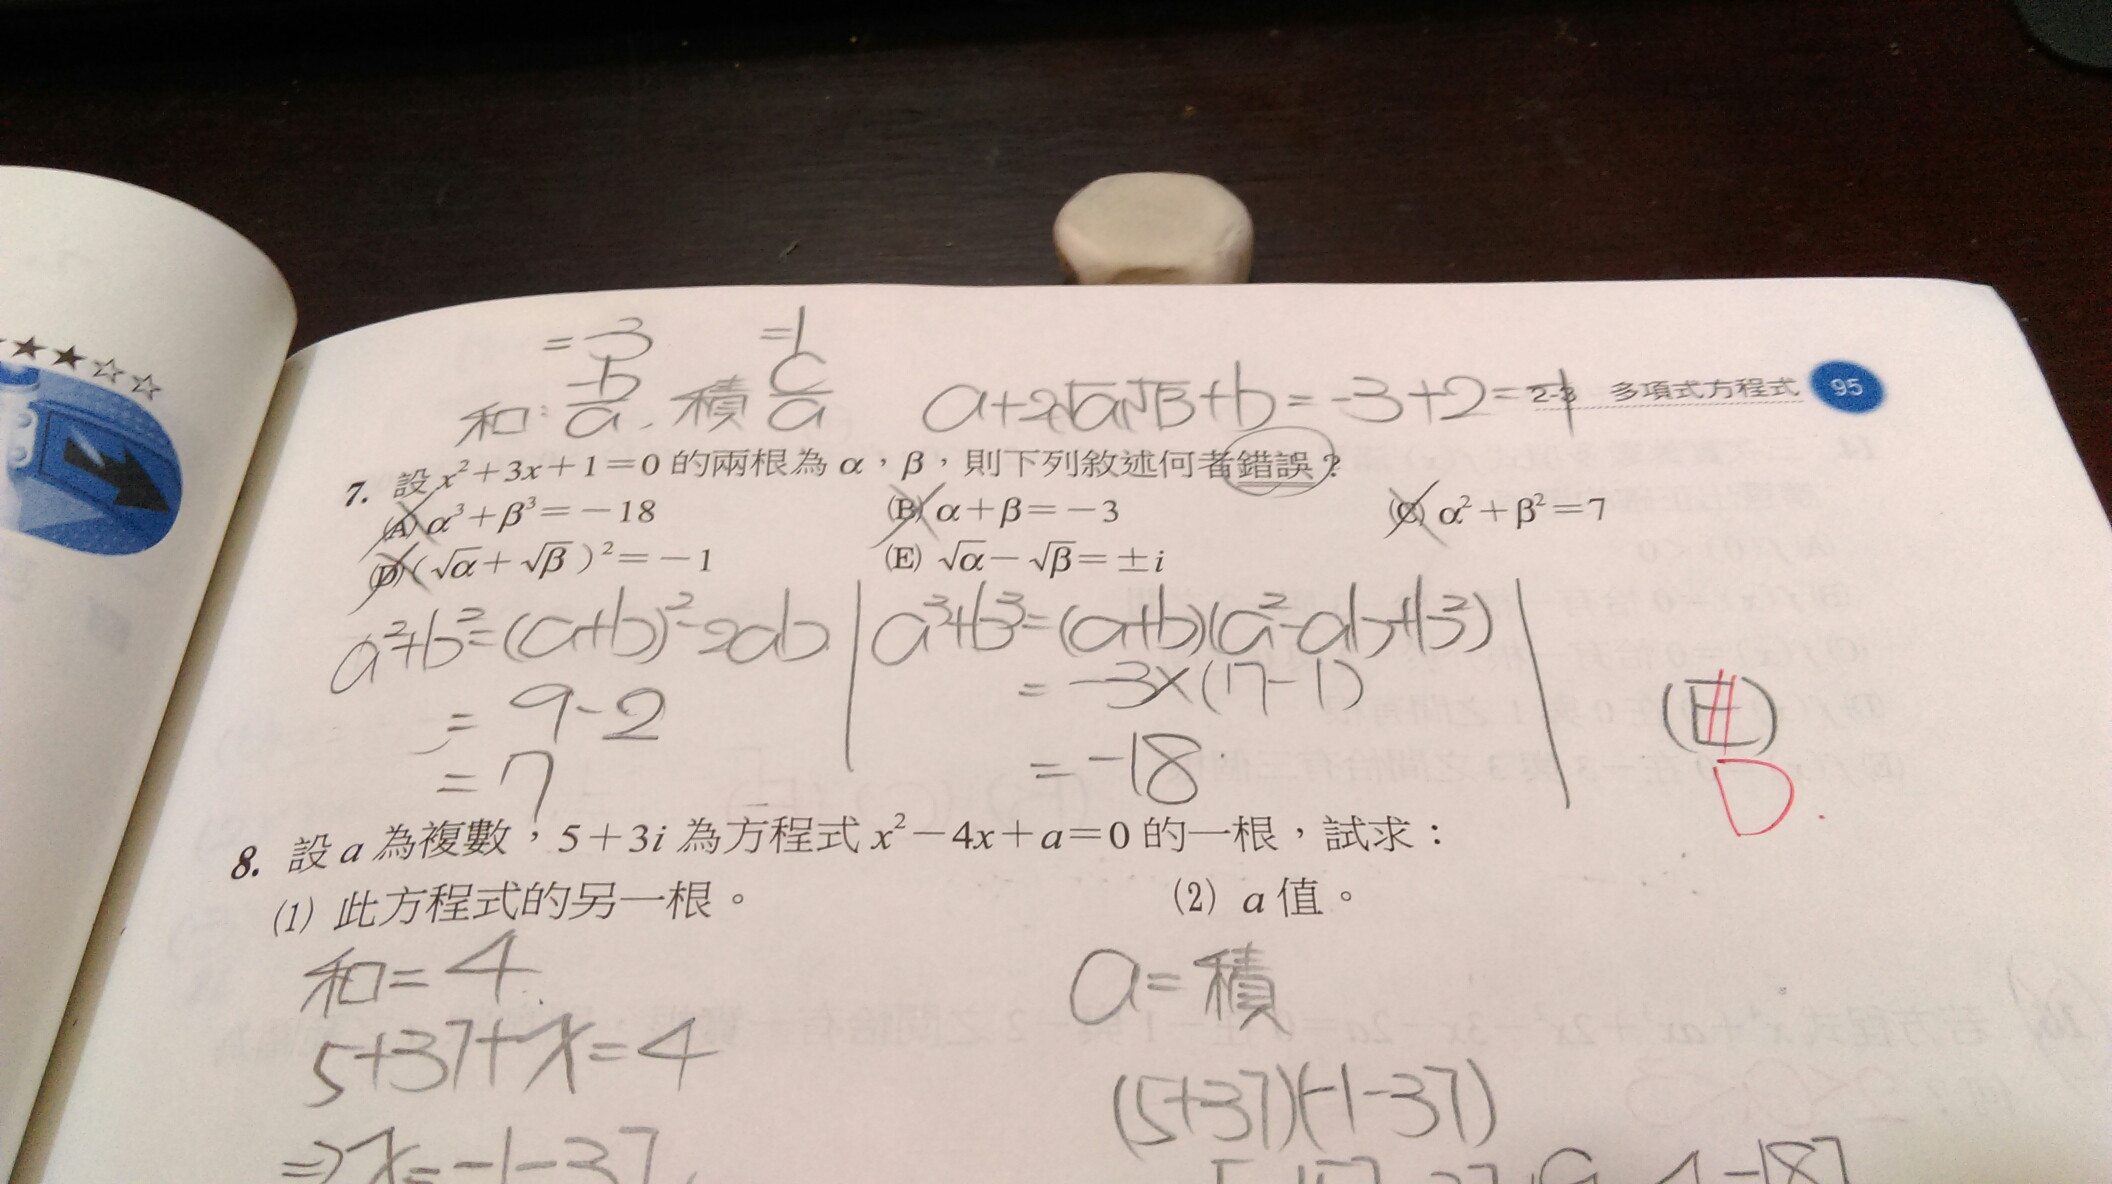 = -3 =1
和: -b/a . 積 c/a a+2√a√b+b = -3+2=-1
2-3 多項式方程式 95
7. 設 x²+3x+1=0 的兩根為 α,β,則下列敘述何者錯誤?
(A) α³+β³=-18 (B) α+β=-3 (C) α²+β²=7
(D) (√α+√β)²=-1 (E) √α-√β=±i
a²+b²=(a+b)²-2ab a³+b³=(a+b)(a²-ab+b²)
= 9-2 = -3×(7-1)
= 7 = -18
(E)
D.
8. 設 a 為複數,5+3i 為方程式 x²-4x+a=0 的一根,試求:
(1) 此方程式的另一根。 (2) a 值。
和=4 a=積
5+3i+x=4 (5+3i)(-1-3i)
⇒x=-1-3i